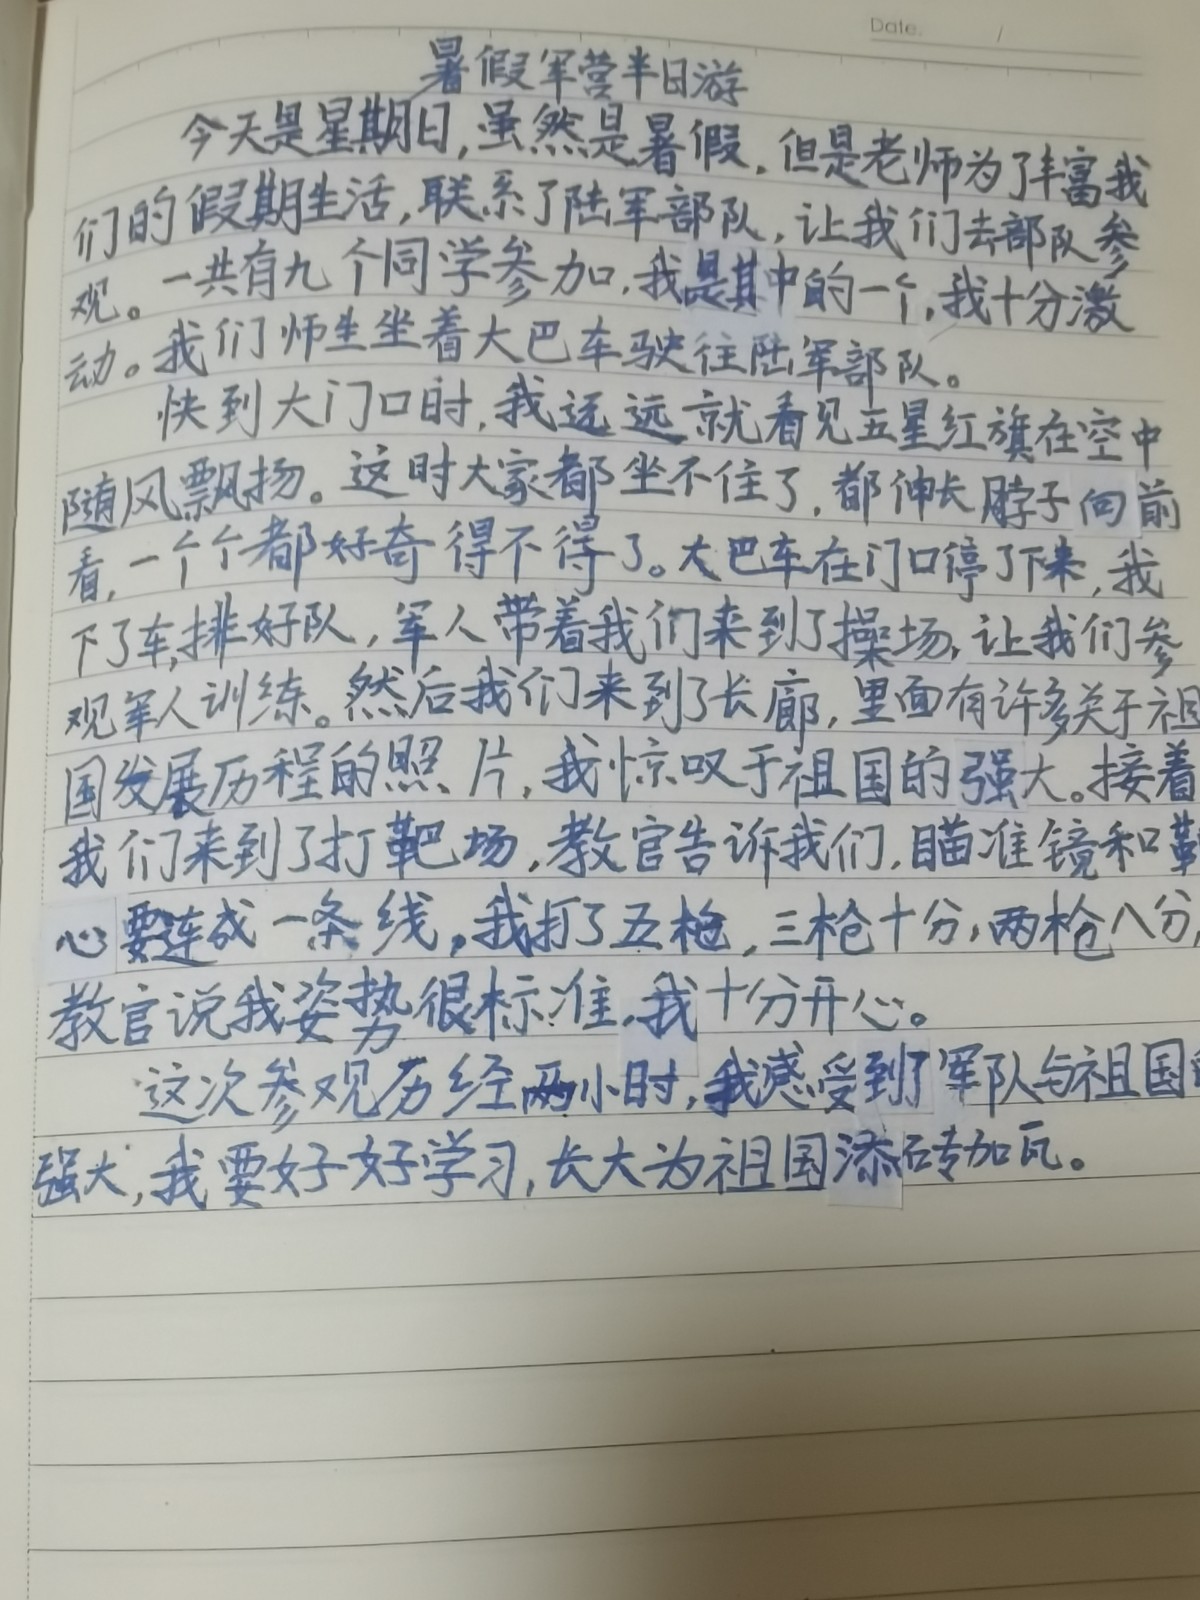 Date. /
暑假军营半日游
今天是星期日,虽然是暑假,但是老师为了丰富我
们的假期生活,联系了陆军部队,让我们去部队参
观。一共有九个同学参加,我是其中的一个,我十分激
动。我们师生坐着大巴车驶往陆军部队。
快到大门口时,我远远就看见五星红旗在空中
随风飘扬。这时大家都坐不住了,都伸长脖子向前
看,一个个都好奇得不得了。大巴车在门口停了下来,我
下了车,排好队,军人带着我们来到了操场,让我们参
观军人训练。然后我们来到了长廊,里面有许多关于祖
国发展历程的照片,我惊叹于祖国的强大。接着
我们来到了打靶场,教官告诉我们,瞄准镜和靶
心要连成一条线,我打了五枪,三枪十分,两枪八分,
教官说我姿势很标准,我十分开心。
这次参观历经两小时,我感受到了军队与祖国
强大,我要好好学习,长大为祖国添砖加瓦。